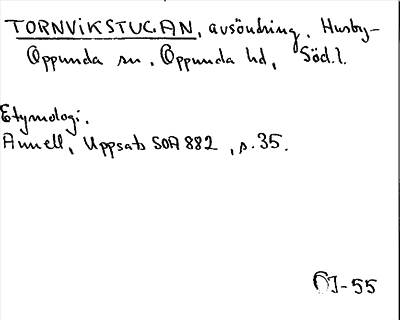 TORNVIKSTUGAN, avsöndring. Husby-
Oppunda sn. Oppunda hd, Söd.l.
Etymologi.
Annell, Uppsats SOA 882, s. 35.
-55